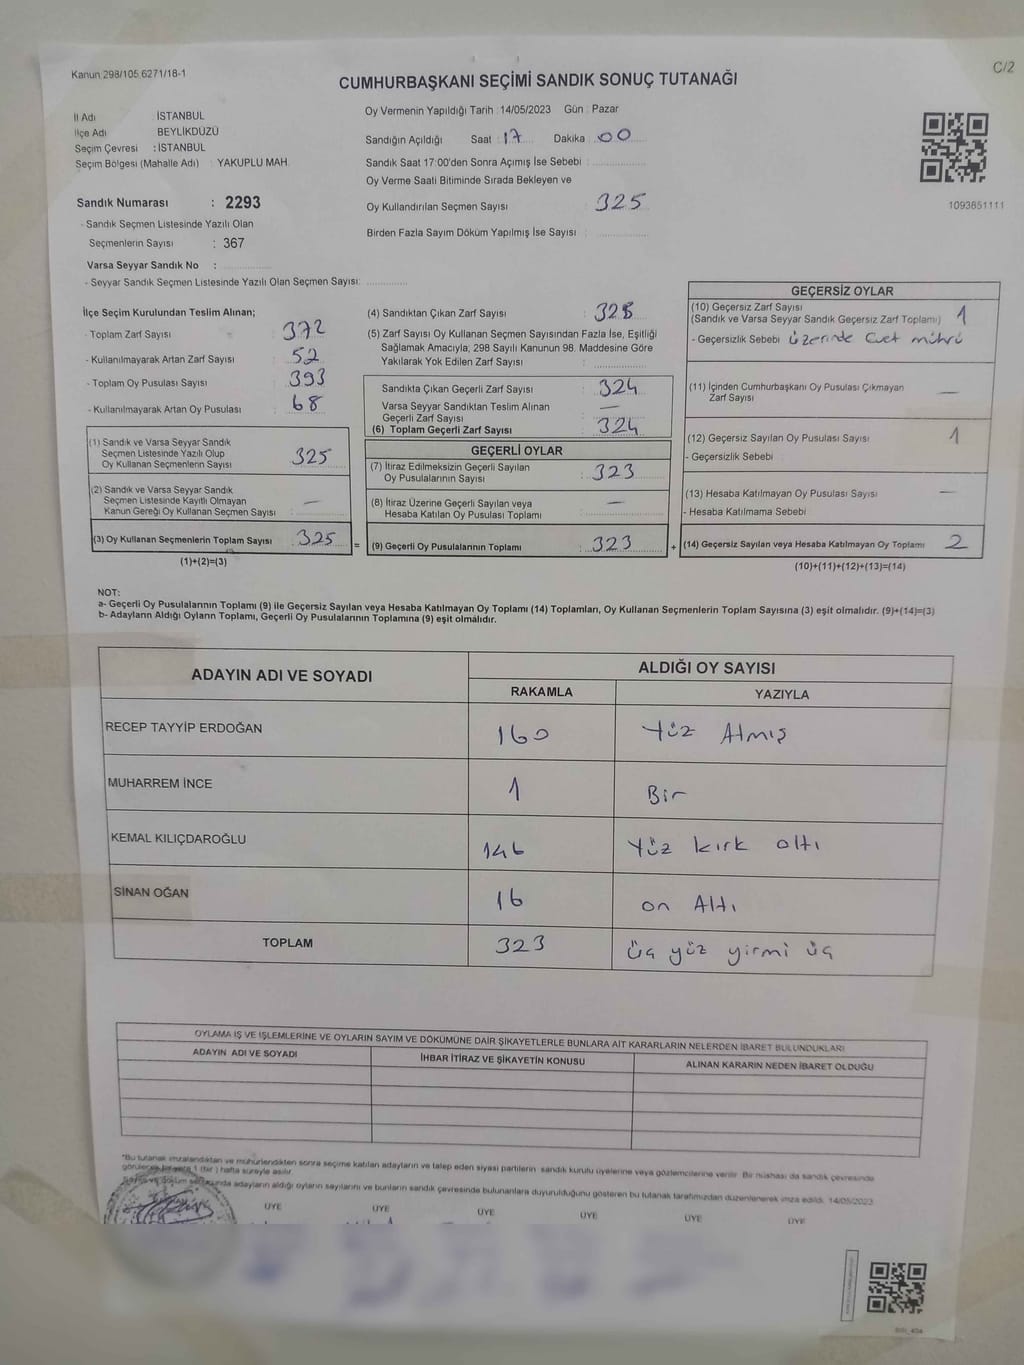 Kanun 298/105 6271/18-1
C/2
CUMHURBAŞKANI SEÇİMİ SANDIK SONUÇ TUTANAĞI
İl Adı İSTANBUL
İlçe Adı BEYLİKDÜZÜ
Seçim Çevresi : İSTANBUL
Seçim Bölgesi (Mahalle Adı) : YAKUPLU MAH.
Oy Vermenin Yapıldığı Tarih : 14/05/2023 Gün : Pazar
Sandığın Açıldığı Saat : 17 Dakika : 00
Sandık Saat 17:00'den Sonra Açımış İse Sebebi :
Oy Verme Saati Bitiminde Sırada Bekleyen ve
Oy Kullandırılan Seçmen Sayısı : 325
Birden Fazla Sayım Döküm Yapılmış İse Sayısı :
1093851111
Sandık Numarası : 2293
- Sandık Seçmen Listesinde Yazılı Olan
Seçmenlerin Sayısı : 367
Varsa Seyyar Sandık No :
- Seyyar Sandık Seçmen Listesinde Yazılı Olan Seçmen Sayısı:
İlçe Seçim Kurulundan Teslim Alınan;
- Toplam Zarf Sayısı : 372
- Kullanılmayarak Artan Zarf Sayısı : 52
- Toplam Oy Pusulası Sayısı : 393
- Kullanılmayarak Artan Oy Pusulası : 68
(1) Sandık ve Varsa Seyyar Sandık
Seçmen Listesinde Yazılı Olup
Oy Kullanan Seçmenlerin Sayısı 325
(2) Sandık ve Varsa Seyyar Sandık
Seçmen Listesinde Kayıtlı Olmayan
Kanun Gereği Oy Kullanan Seçmen Sayısı : —
(3) Oy Kullanan Seçmenlerin Toplam Sayısı : 325
(1)+(2)=(3)
=
(4) Sandıktan Çıkan Zarf Sayısı : 325
(5) Zarf Sayısı Oy Kullanan Seçmen Sayısından Fazla İse, Eşitliği
Sağlamak Amacıyla; 298 Sayılı Kanunun 98. Maddesine Göre
Yakılarak Yok Edilen Zarf Sayısı :
Sandıkta Çıkan Geçerli Zarf Sayısı : 324
Varsa Seyyar Sandıktan Teslim Alınan
Geçerli Zarf Sayısı : —
(6) Toplam Geçerli Zarf Sayısı : 324
GEÇERLİ OYLAR
(7) İtiraz Edilmeksizin Geçerli Sayılan
Oy Pusulalarının Sayısı : 323
(8) İtiraz Üzerine Geçerli Sayılan veya
Hesaba Katılan Oy Pusulası Toplamı : —
(9) Geçerli Oy Pusulalarının Toplamı : 323
+
GEÇERSİZ OYLAR
(10) Geçersiz Zarf Sayısı
(Sandık ve Varsa Seyyar Sandık Geçersiz Zarf Toplamı) 1
- Geçersizlik Sebebi : üzerinde Evet mührü
(11) İçinden Cumhurbaşkanı Oy Pusulası Çıkmayan
Zarf Sayısı —
(12) Geçersiz Sayılan Oy Pusulası Sayısı 1
- Geçersizlik Sebebi
(13) Hesaba Katılmayan Oy Pusulası Sayısı —
- Hesaba Katılmama Sebebi
(14) Geçersiz Sayılan veya Hesaba Katılmayan Oy Toplamı 2
(10)+(11)+(12)+(13)=(14)
NOT:
a- Geçerli Oy Pusulalarının Toplamı (9) ile Geçersiz Sayılan veya Hesaba Katılmayan Oy Toplamı (14) Toplamları, Oy Kullanan Seçmenlerin Toplam Sayısına (3) eşit olmalıdır. (9)+(14)=(3)
b- Adayların Aldığı Oyların Toplamı, Geçerli Oy Pusulalarının Toplamına (9) eşit olmalıdır.
ADAYIN ADI VE SOYADI ALDIĞI OY SAYISI
RAKAMLA YAZIYLA
RECEP TAYYİP ERDOĞAN 160 Yüz Atmış
MUHARREM İNCE 1 Bir
KEMAL KILIÇDAROĞLU 146 Yüz kırk altı
SİNAN OĞAN 16 on Altı
TOPLAM 323 üç yüz yirmi üç
OYLAMA İŞ VE İŞLEMLERİNE VE OYLARIN SAYIM VE DÖKÜMÜNE DAİR ŞİKAYETLERLE BUNLARA AİT KARARLARIN NELERDEN İBARET BULUNDUKLARI
ADAYIN ADI VE SOYADI İHBAR İTİRAZ VE ŞİKAYETİN KONUSU ALINAN KARARIN NEDEN İBARET OLDUĞU
*Bu tutanak imzalandıktan ve mühürlendikten sonra seçime katılan adayların ve talep eden siyasi partilerin sandık kurulu üyelerine veya gözlemcilerine verilir. Bir nüshası da sandık çevresinde
görülecek bir yere 1 (bir) hafta süreyle asılır.
Sayım ve döküm sonucunda adayların aldığı oyların sayılarını ve bunların sandık çevresinde bulunanlara duyurulduğunu gösteren bu tutanak tarafımızdan düzenlenerek imza edildi. 14/05/2023
ÜYE ÜYE ÜYE ÜYE ÜYE ÜYE